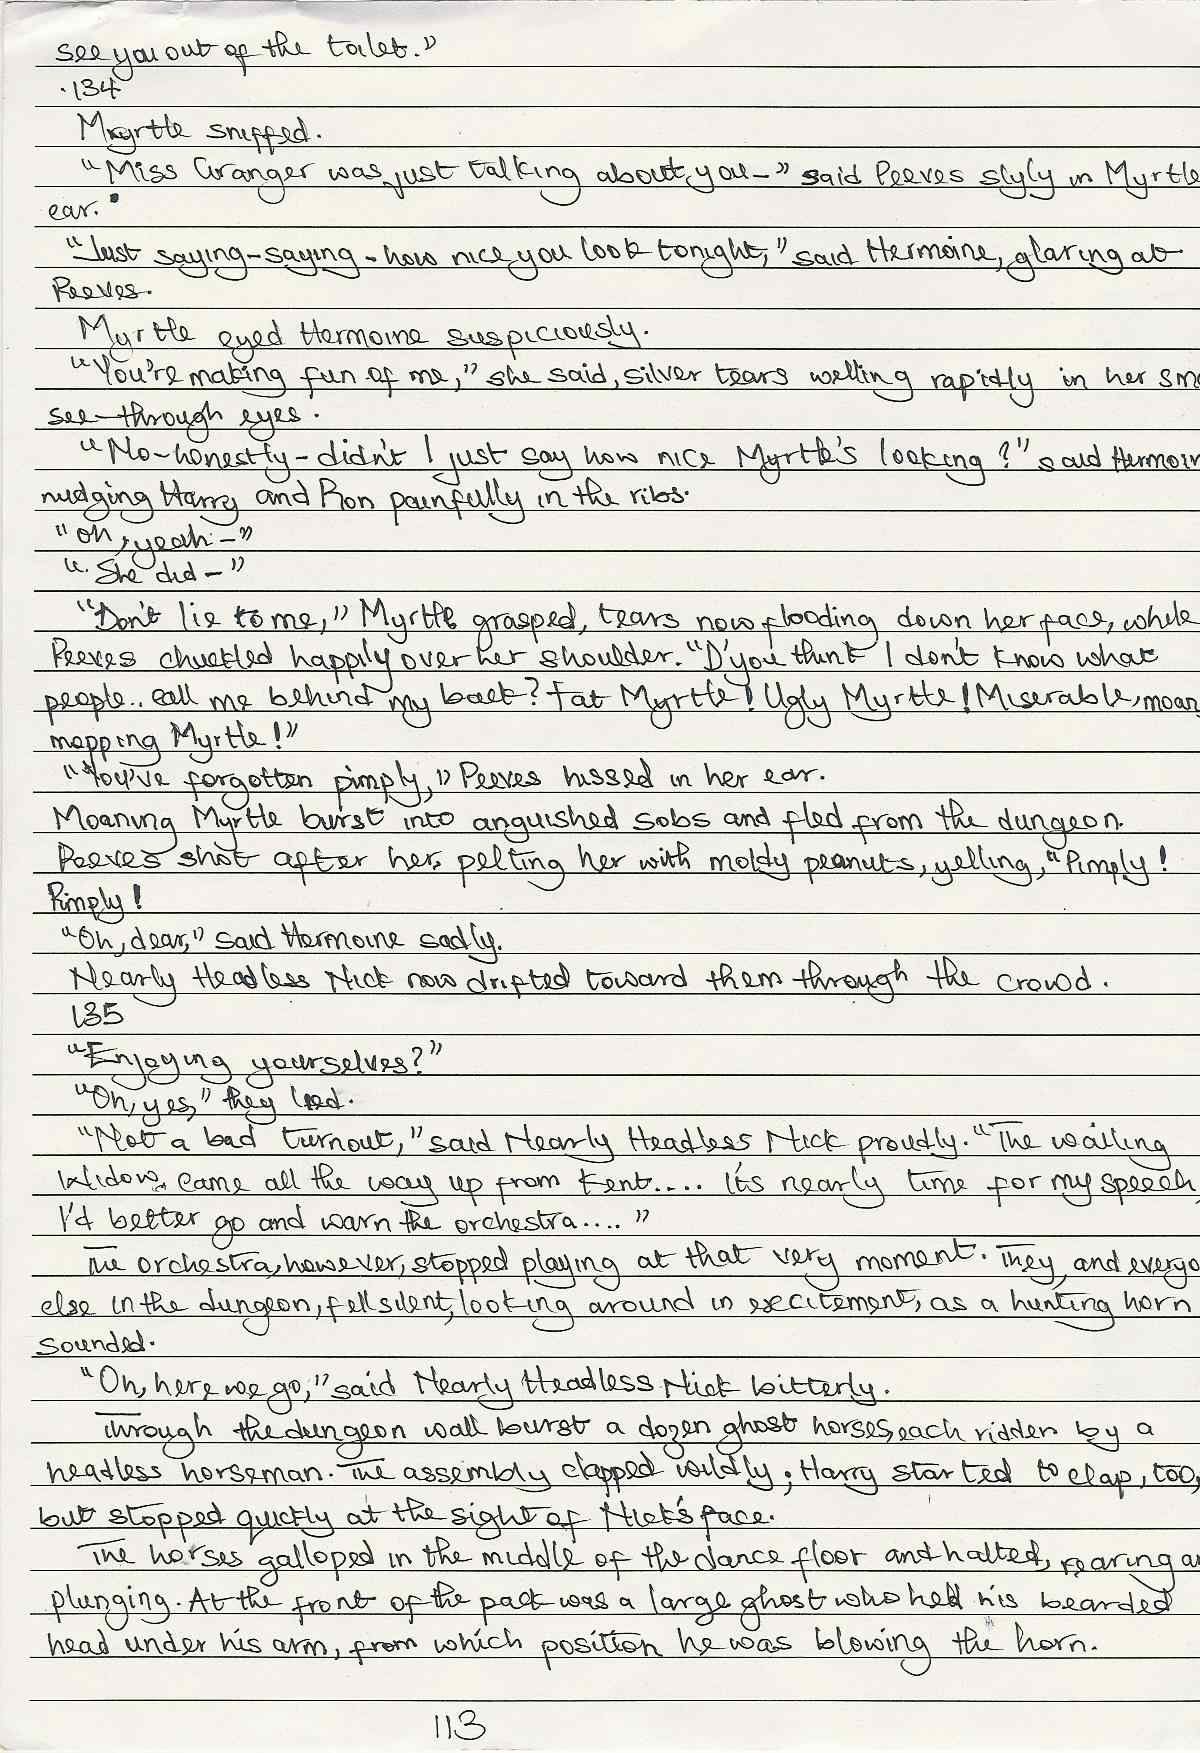 see you out of the toilet."
·134
Myrtle sniffed.
"Miss Granger was just talking about you-" said Peeves slyly in Myrtle
ear."
"Just saying-saying-how nice you look tonight," said Hermoine, glaring at
Peeves.
Myrtle eyed Hermoine suspiciously.
"You're making fun of me," she said, silver tears welling rapidly in her sma
see-through eyes.
"No-honestly-didn't I just say how nice Myrtle's looking?" said Hermoin
nudging Harry and Ron painfully in the ribs.
"Oh, yeah-"
"She did-"
"Don't lie to me," Myrtle grasped, tears now flooding down her face, while
Peeves chuckled happily over her shoulder. "D'you think I don't know what
people.. call me behind my back? Fat Myrtle! Ugly Myrtle! Miserable, moan
mopping Myrtle!"
"You've forgotten pimply," Peeves hissed in her ear.
Moaning Myrtle burst into anguished sobs and fled from the dungeon.
Peeves shot after her, pelting her with moldy peanuts, yelling, "Pimply!
Pimply!
"Oh, dear," said Hermoine sadly.
Nearly Headless Nick now drifted toward them through the crowd.
135
"Enjoying yourselves?"
"Oh, yes," they lied.
"Not a bad turnout," said Nearly Headless Nick proudly. "The wailing
Widow came all the way up from Kent.... It's nearly time for my speech,
I'd better go and warn the orchestra...."
The orchestra, however, stopped playing at that very moment. They, and everyo
else in the dungeon, fell silent, looking around in excitement, as a hunting horn
sounded.
"Oh, here we go," said Nearly Headless Nick bitterly.
Through the dungeon wall burst a dozen ghost horses, each ridden by a
headless horseman. The assembly clapped wildly; Harry started to clap, too,
but stopped quickly at the sight of Nick's face.
The horses galloped in the middle of the dance floor and halted, rearing an
plunging. At the front of the pack was a large ghost who held his bearded
head under his arm, from which position he was blowing the horn.
113